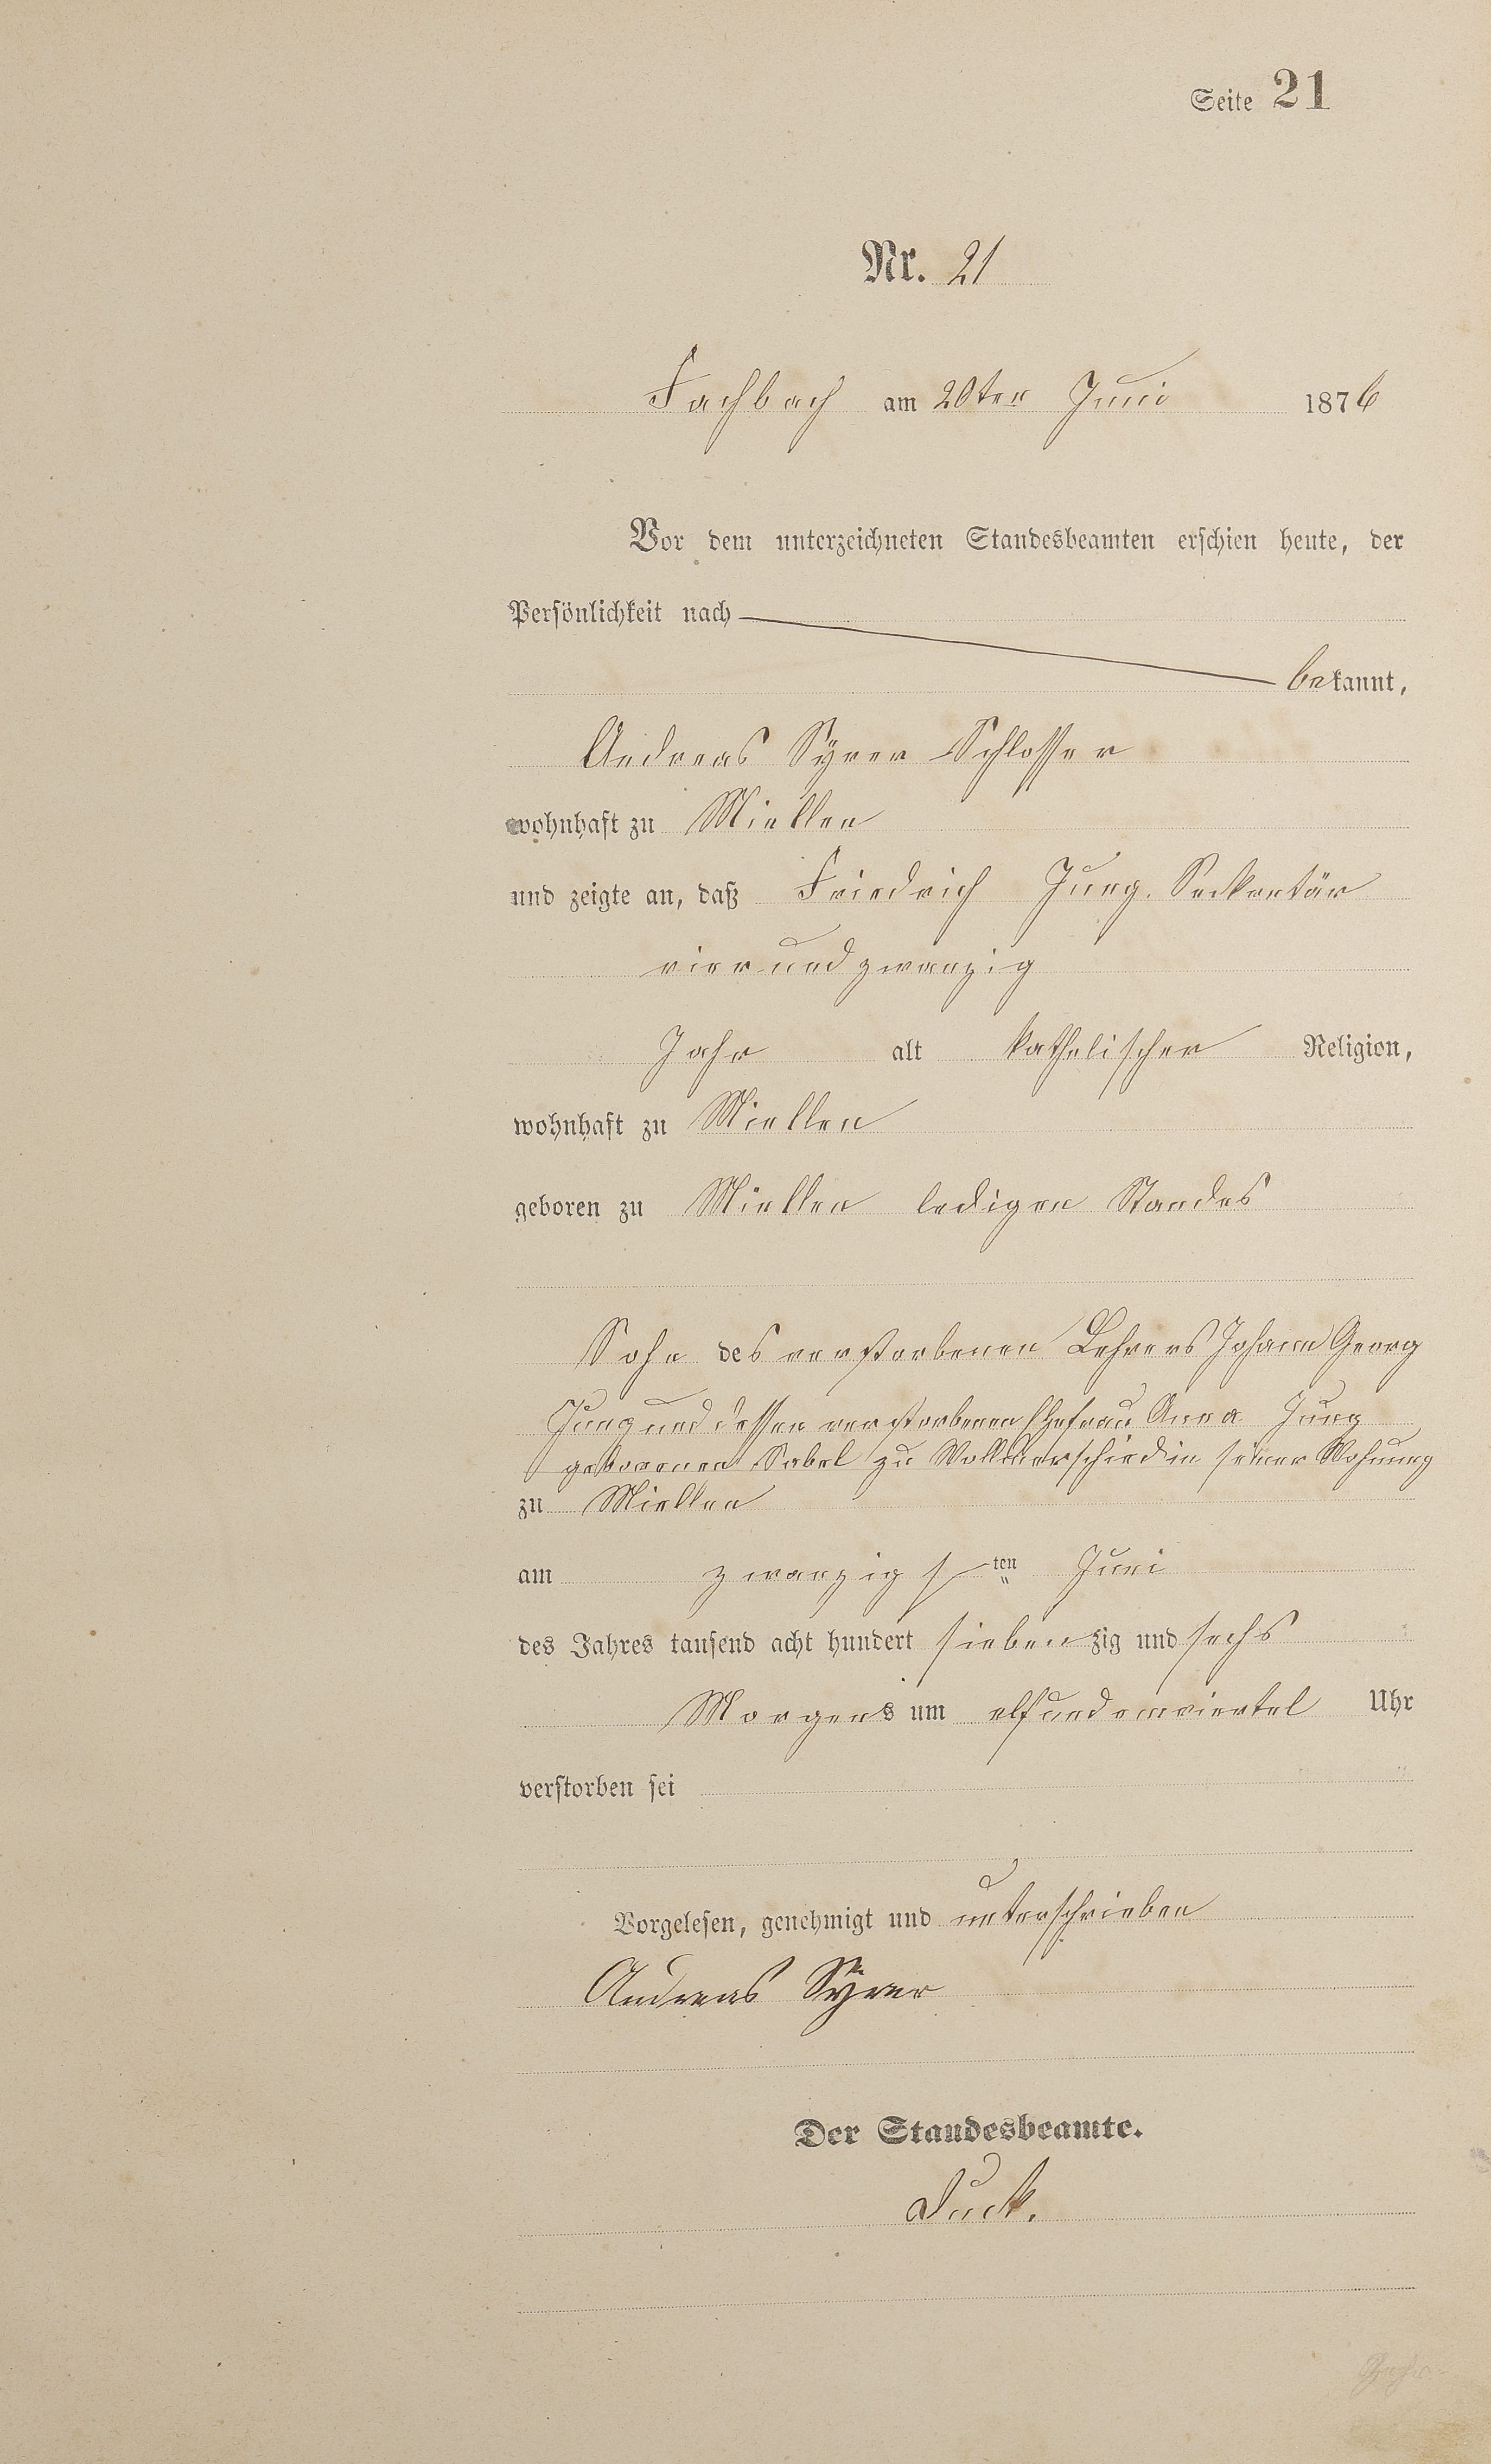 Seite 21
Nr. 21
Fachbach am 20ten Juni 1876
Vor dem unterzeichneten Standesbeamten erschien heute, der
Persönlichkeit nach
bekannt,
Andreas Syrer Schlosser
wohnhaft zu Miellen
und zeigte an, daß Friedrich Jung. Seckretär
vierundzwanzig
Jahr alt katholischer Religion,
wohnhaft zu Miellen
geboren zu Miellen ledigen Standes
Sohn des verstorbenen Lehrers Johann Georg
Jung und dessen verstorbenen Ehefrau Anna Jung
geborenen Sabel zu in seiner Wohnung
zu Miellen
am zwanzigsten Juni
des Jahres tausend acht hundert siebenzig und sechs
Morgens um elfundeinviertel Uhr
verstorben sei
Vorgelesen, genehmigt und unterschrieben
Andreas Syrer
Der Standesbeamte.
Duck.